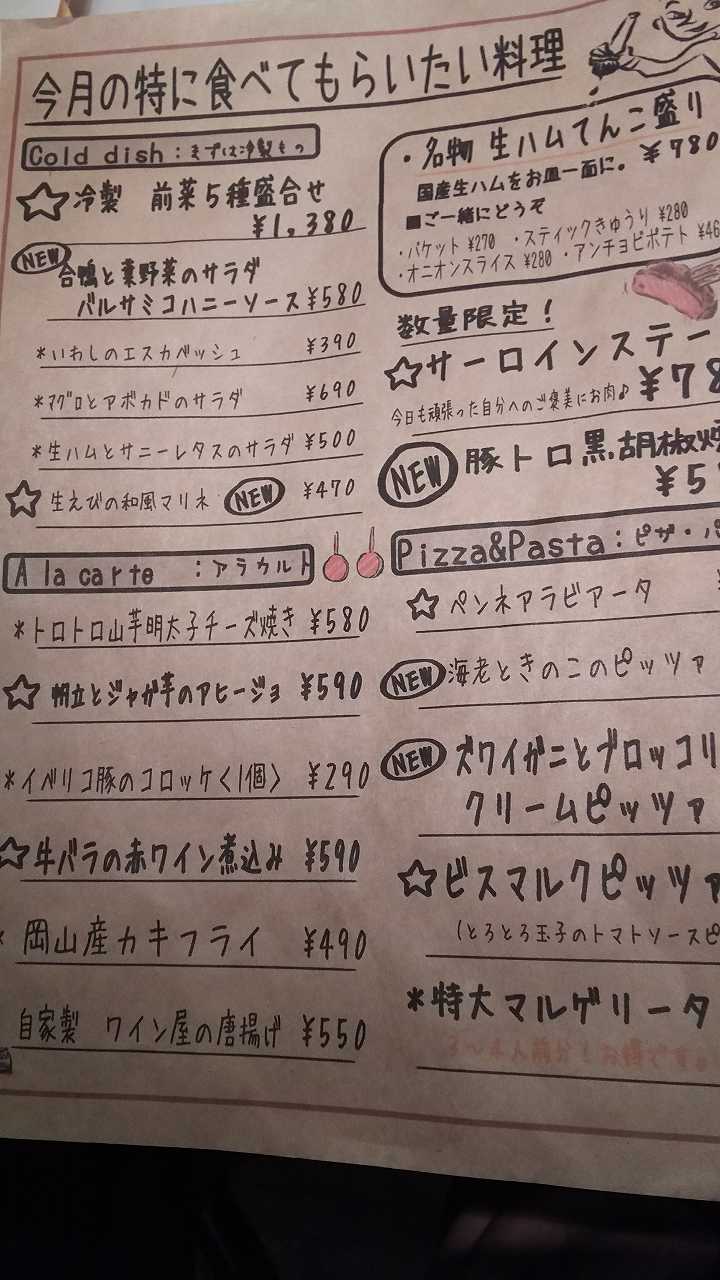 今月の特に食べてもらいたい料理
Cold dish：まずは冷製もっ
☆冷製 前菜5種盛合せ
¥1,380
NEW 合鴨と葉野菜のサラダ
バルサミコハニーソース ¥580
*いわしのエスカベッシュ ¥390
*マグロとアボカドのサラダ ¥690
*生ハムとサニーレタスのサラダ ¥500
☆ 生えびの和風マリネ NEW ¥470
A la carte ：アラカルト
*トロトロ山芋明太子チーズ焼き ¥580
☆ 帆立とジャガ芋のアヒージョ ¥590
*イベリコ豚のコロッケ〈1個〉 ¥290
☆牛バラの赤ワイン煮込み ¥590
* 岡山産カキフライ ¥490
自家製 ワイン屋の唐揚げ ¥550
・名物 生ハムてんこ盛り
¥780
国産生ハムをお皿一面に。
■ご一緒にどうぞ
・バケット ¥270 ・スティックきゅうり ¥280
・オニオンスライス ¥280 ・アンチョビポテト ¥46
数量限定！
☆サーロインステー
今日も頑張った自分へのご褒美にお肉♪ ¥78
NEW 豚トロ黒胡椒焼
¥5
Pizza&Pasta：ピザ・パ
☆ ペンネアラビアータ
NEW 海老ときのこのピッツァ
NEW ズワイガニとブロッコリ
クリームピッツァ
☆ビスマルクピッツァ
(とろとろ玉子のトマトソースピ
*特大マルゲリータ
3〜4人前分！お得です。